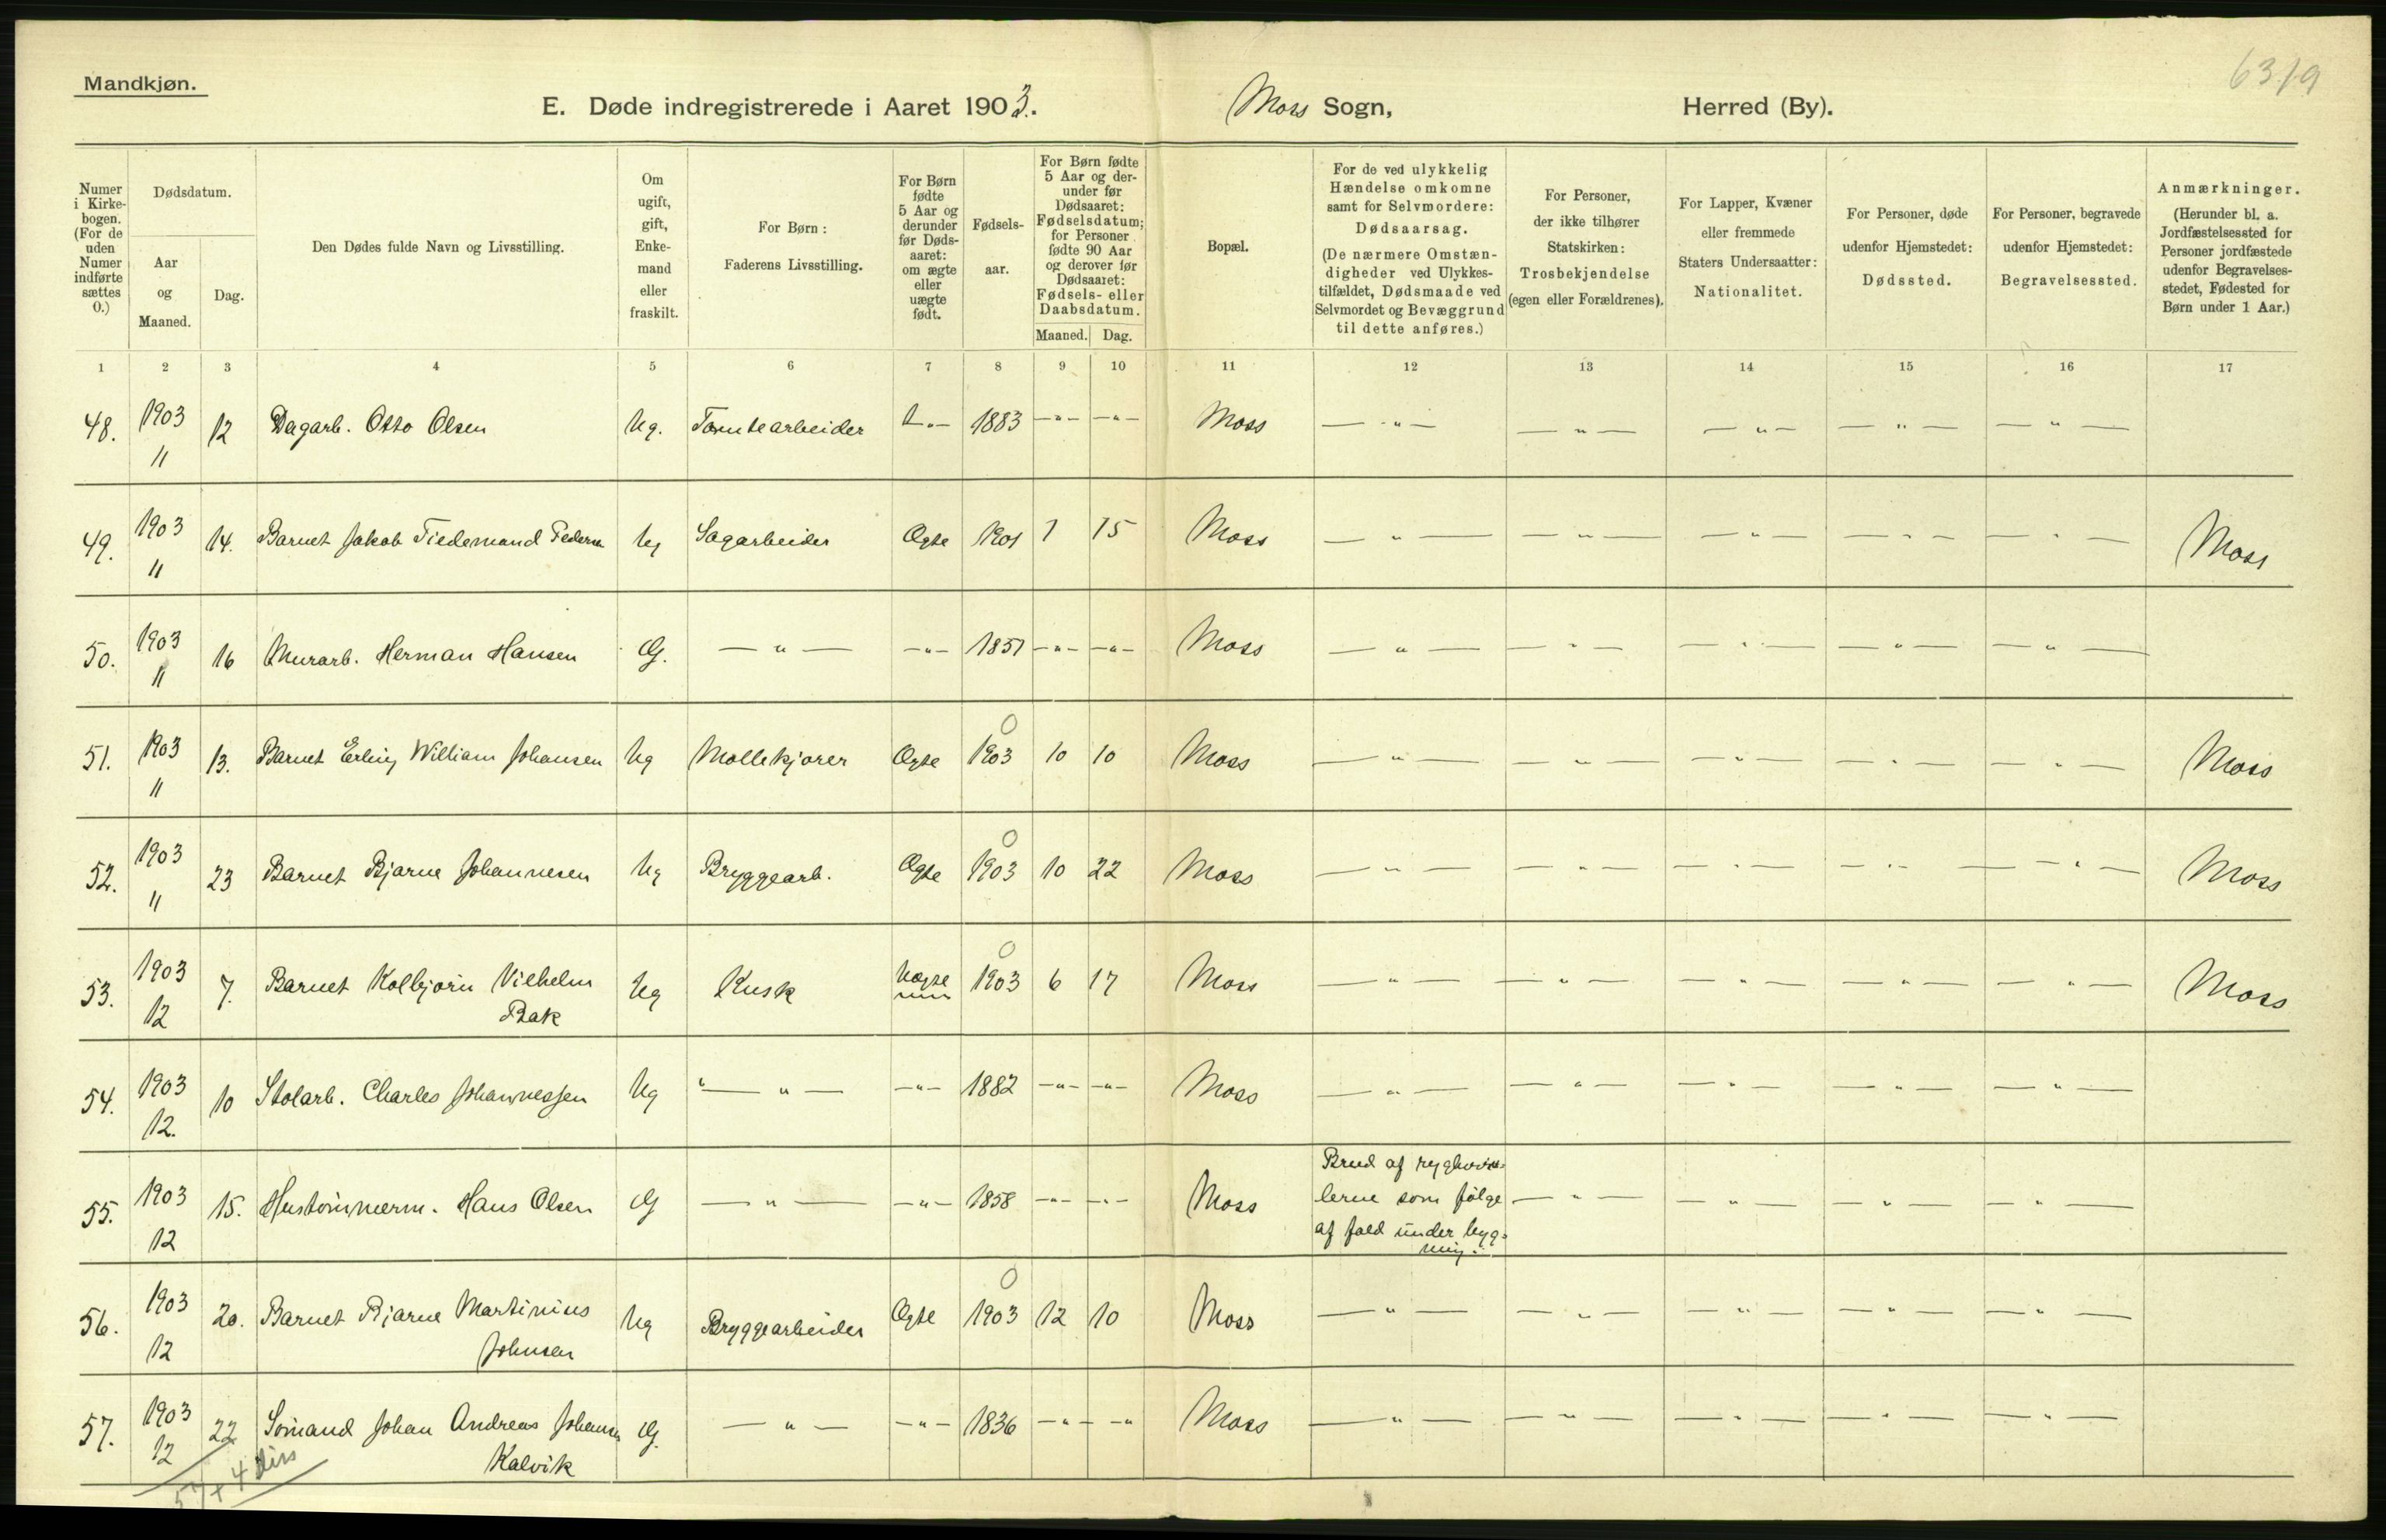 Mandkjøn.
6319
E. Døde indregistrerede i Aaret 1903. Moss Sogn, Herred (By).
Numer i Kirkebogen. (For de uden Numer indførte sættes 0.)
Dødsdatum.
Aar og Maaned.
Dag.
Den Dødes fulde Navn og Livsstilling.
Om ugift, gift, Enkemand eller fraskilt.
For Børn: Faderens Livsstilling.
For Børn fødte 5 Aar og derunder før Dødsaaret: om ægte eller uægte født.
Fødselsaar.
For Børn fødte 5 Aar og derunder før Dødsaaret: Fødselsdatum; for Personer fødte 90 Aar og derover før Dødsaaret: Fødsels- eller Daabsdatum.
Maaned. Dag.
Bopæl.
For de ved ulykkelig Hændelse omkomne samt for Selvmordere: Dødsaarsag. (De nærmere Omstændigheder ved Ulykkestilfældet, Dødsmaade ved Selvmordet og Bevæggrund til dette anføres.)
For Personer, der ikke tilhører Statskirken: Trosbekjendelse (egen eller Forældrenes).
For Lapper, Kvæner eller fremmede Staters Undersaatter: Nationalitet.
For Personer, døde udenfor Hjemstedet: Dødssted.
For Personer, begravede udenfor Hjemstedet: Begravelsessted.
Anmærkninger. (Herunder bl. a. Jordfæstelsessted for Personer jordfæstede udenfor Begravelsesstedet, Fødested for Børn under 1 Aar.)
1 2 3 4 5 6 7 8 9 10 11 12 13 14 15 16 17
48. 1903 11 12 Dagarb. Otto Olsen Ug. Tomtearbeider —"— 1883 —"— —"— Moss —"— —"— —"— —"— —"—
49. 1903 11 14. Barnet Jakob Tiedemand Pedersen Ug Sagarbeider Ægte 1901 7 15 Moss —"— —"— —"— —"— —"— Moss
50. 1903 11 16 Murarb. Herman Hansen G. —"— —"— 1857 —"— —"— Moss —"— —"— —"— —"— —"—
51. 1903 11 13. Barnet Erling William Johansen Ug Møllekjører Ægte 0 1903 10 10 Moss —"— —"— —"— —"— —"— Moss
52. 1903 11 23 Barnet Bjarne Johannesen Ug Bryggearb. Ægte 0 1903 10 22 Moss —"— —"— —"— —"— —"— Moss
53. 1903 12 7. Barnet Kolbjørn Vilhelm Bak Ug Kusk Uægte 0 1903 6 17 Moss —"— —"— —"— —"— —"— Moss
54. 1903 12. 10 Stolarb. Charles Johannessen Ug —"— —"— 1882 —"— —"— Moss —"— —"— —"— —"— —"—
55. 1903 12 15. Hustømmerm. Hans Olsen G —"— —"— 1858 —"— —"— Moss Brud af ryghvirvlerne som følge af fald under bygning. —"— —"— —"— —"—
56. 1903 12 20. Barnet Bjarne Martinius Johnsen Ug Bryggearbeider Ægte 0 1903 12 10 Moss —"— —"— —"— —"— —"—
57. 1903 12 22 Sømand Johan Andreas Johansen Kalvik G. —"— —"— 1836 —"— —"— Moss —"— —"— —"— —"— —"—
57 + 4